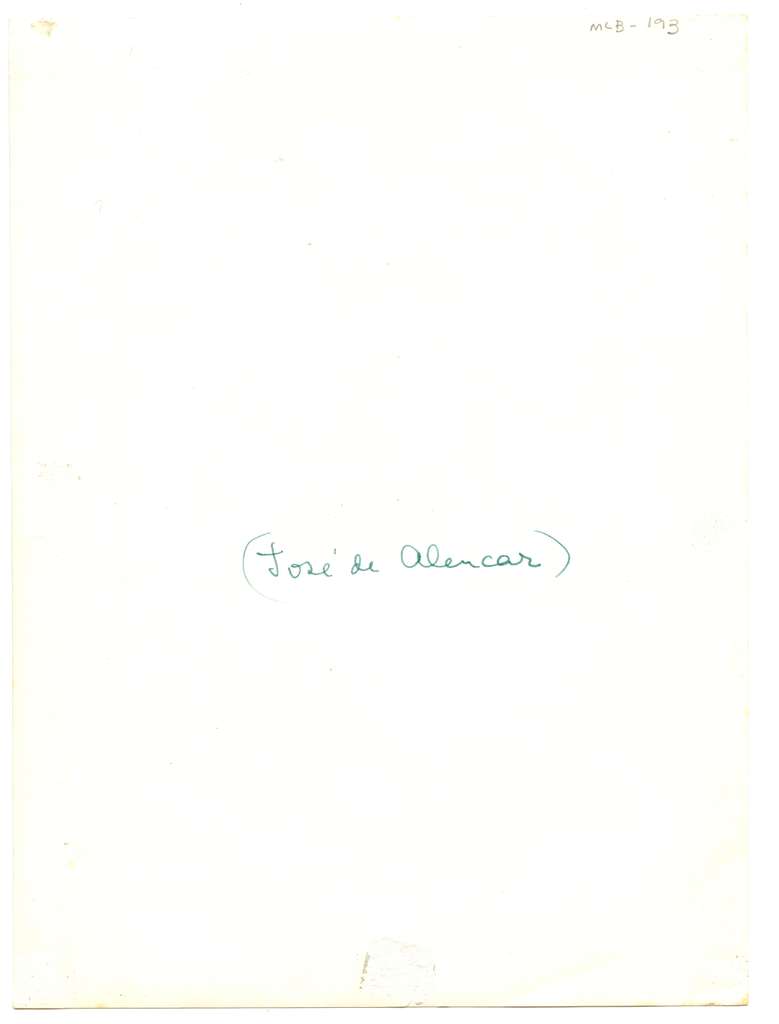 MCB - 193
(José de Alencar)